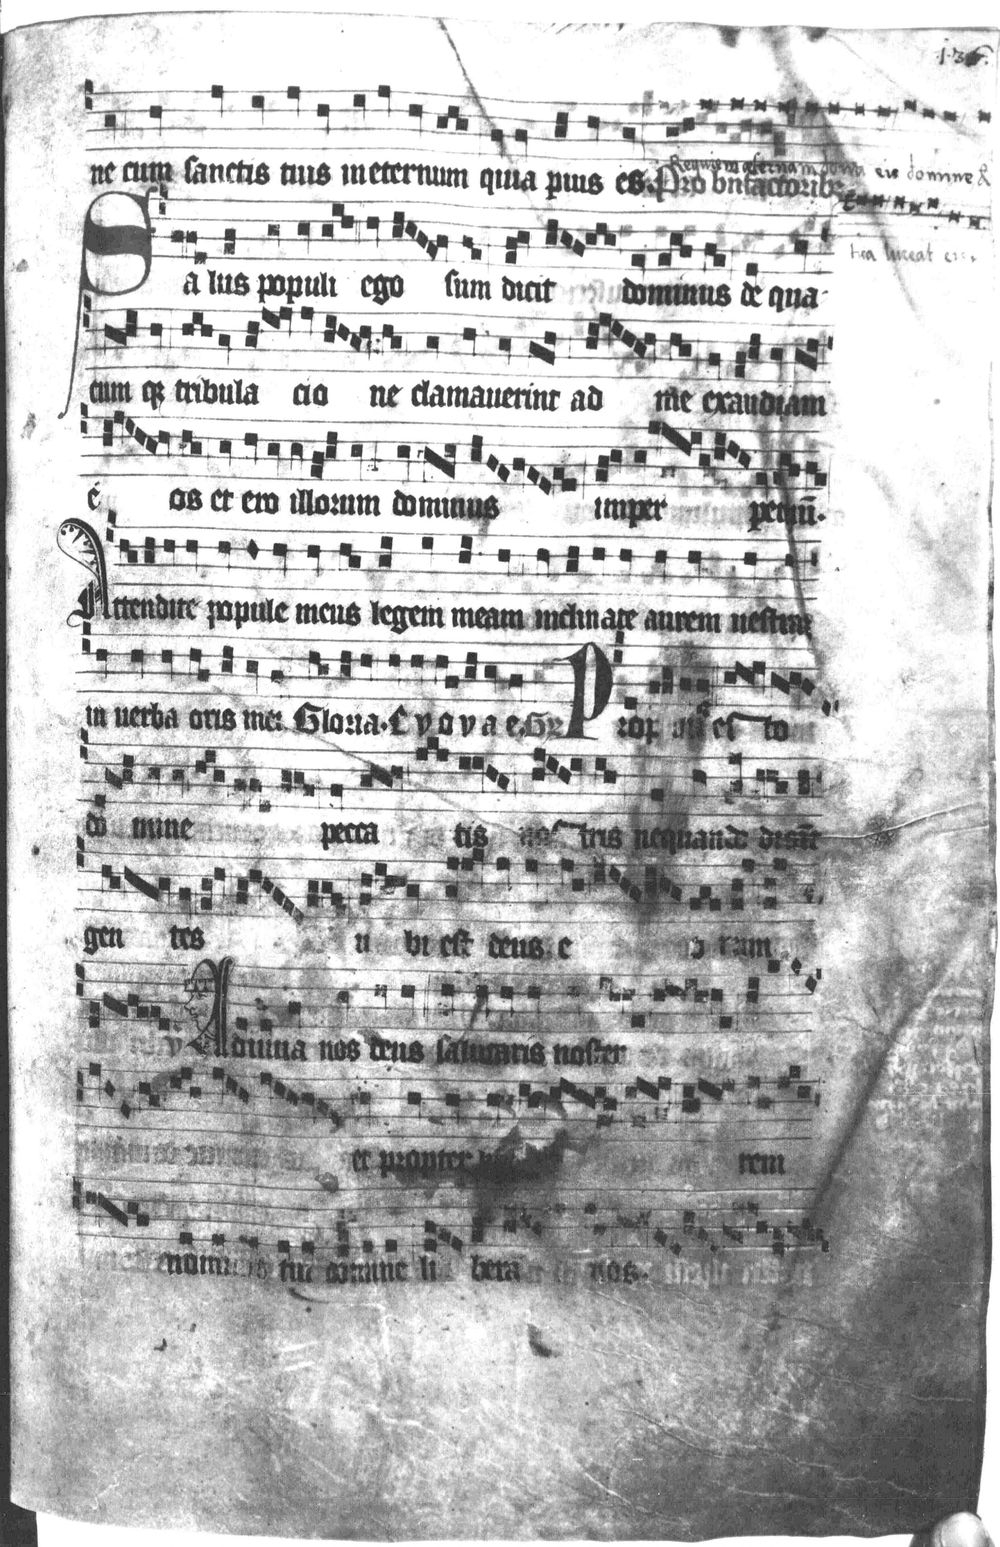 136.
ne cum sanctis tuis ineternum quia pius es. Pro bnfactoribȝ
Requiem aeternam dona eis domine &
lux luceat eis.
Sa lus populi ego sum dicit dominus de qua
cum qȝ tribula cio ne clamauerint ad me exaudiam
e os et ero illorum dominus imper petuū.
Attendite popule meus legem meam inclinate aurem uestram
in uerba oris mei Gloria. E v o v a e. Gr Prop est to
do mine pecca tis nos tris nequando
gen tes u bi est deus e o rum
v Adiuua nos deus salutaris noster
et propter rem
nominis tui domine li bera nos.